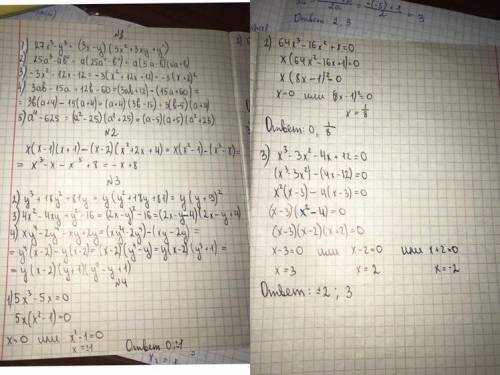 N1
1) 27x³-y³ = (3x-y)(3x²+3xy+y²)
2) 25a³-ab² = a(25a²-b²) = a(5a-b)(5a+b)
3) -3x²-12x-12 = -3(x²+12x-12) = -3(x+2)²
4) 3ab-15a+12b-60 = (3ab+12)-(15a+60) =
= 3b(a+4)-15(a+4) = (a+4)(3b-15) = 3(b-5)(a+4)
5) a⁴-625 = (a²-25)(a²+25) = (a-5)(a+5)(a²+25)
N2
x(x-1)(x+1)-(x-2)(x²+2x+4) = x(x²-1)-(x³-8) =
= x³-x-x³+8 = -x+8
N3
2) y³+18y²+81y = y(y²+18y+81) = y(y+9)²
3) 4x²-4xy+y²-16 = (2x-y)²-16 = (2x-y-4)(2x-y+4)
4) xy⁴-2y⁴-xy+2y = (xy⁴-2y⁴)-(xy-2y) =
= y⁴(x-2)-y(x-2) = (x-2)(y⁴-y) = y(x-2)(y³-1) =
= y(x-2)(y+1)(y²-y+1)
N4
1) 5x³-5x=0
5x(x²-1)=0
x=0 или x²-1=0
x=±1
Ответ: 0, ±1
Ответ: 2, 3
2) 64x³-16x²+x=0
x(64x²-16x+1)=0
x(8x-1)²=0
x=0 или (8x-1)²=0
x=1/8
Ответ: 0, 1/8
3) x³-3x²-4x+12=0
(x³-3x²)-(4x-12)=0
x²(x-3)-4(x-3)=0
(x-3)(x²-4)=0
(x-3)(x-2)(x+2)=0
x-3=0 или x-2=0 или x+2=0
x=3 x=2 x=-2
Ответ: ±2; 3